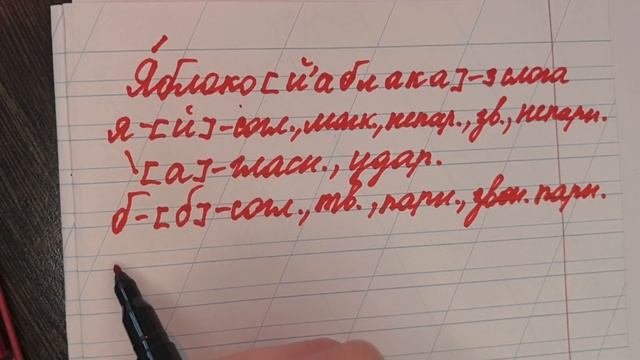 Я́блоко [й'аблака]-3 слога
я-[й]-согл., мягк, непар., зв., непарн.
\[а]-гласн., удар.
б-[б]-согл., тв., парн., звон. парн.